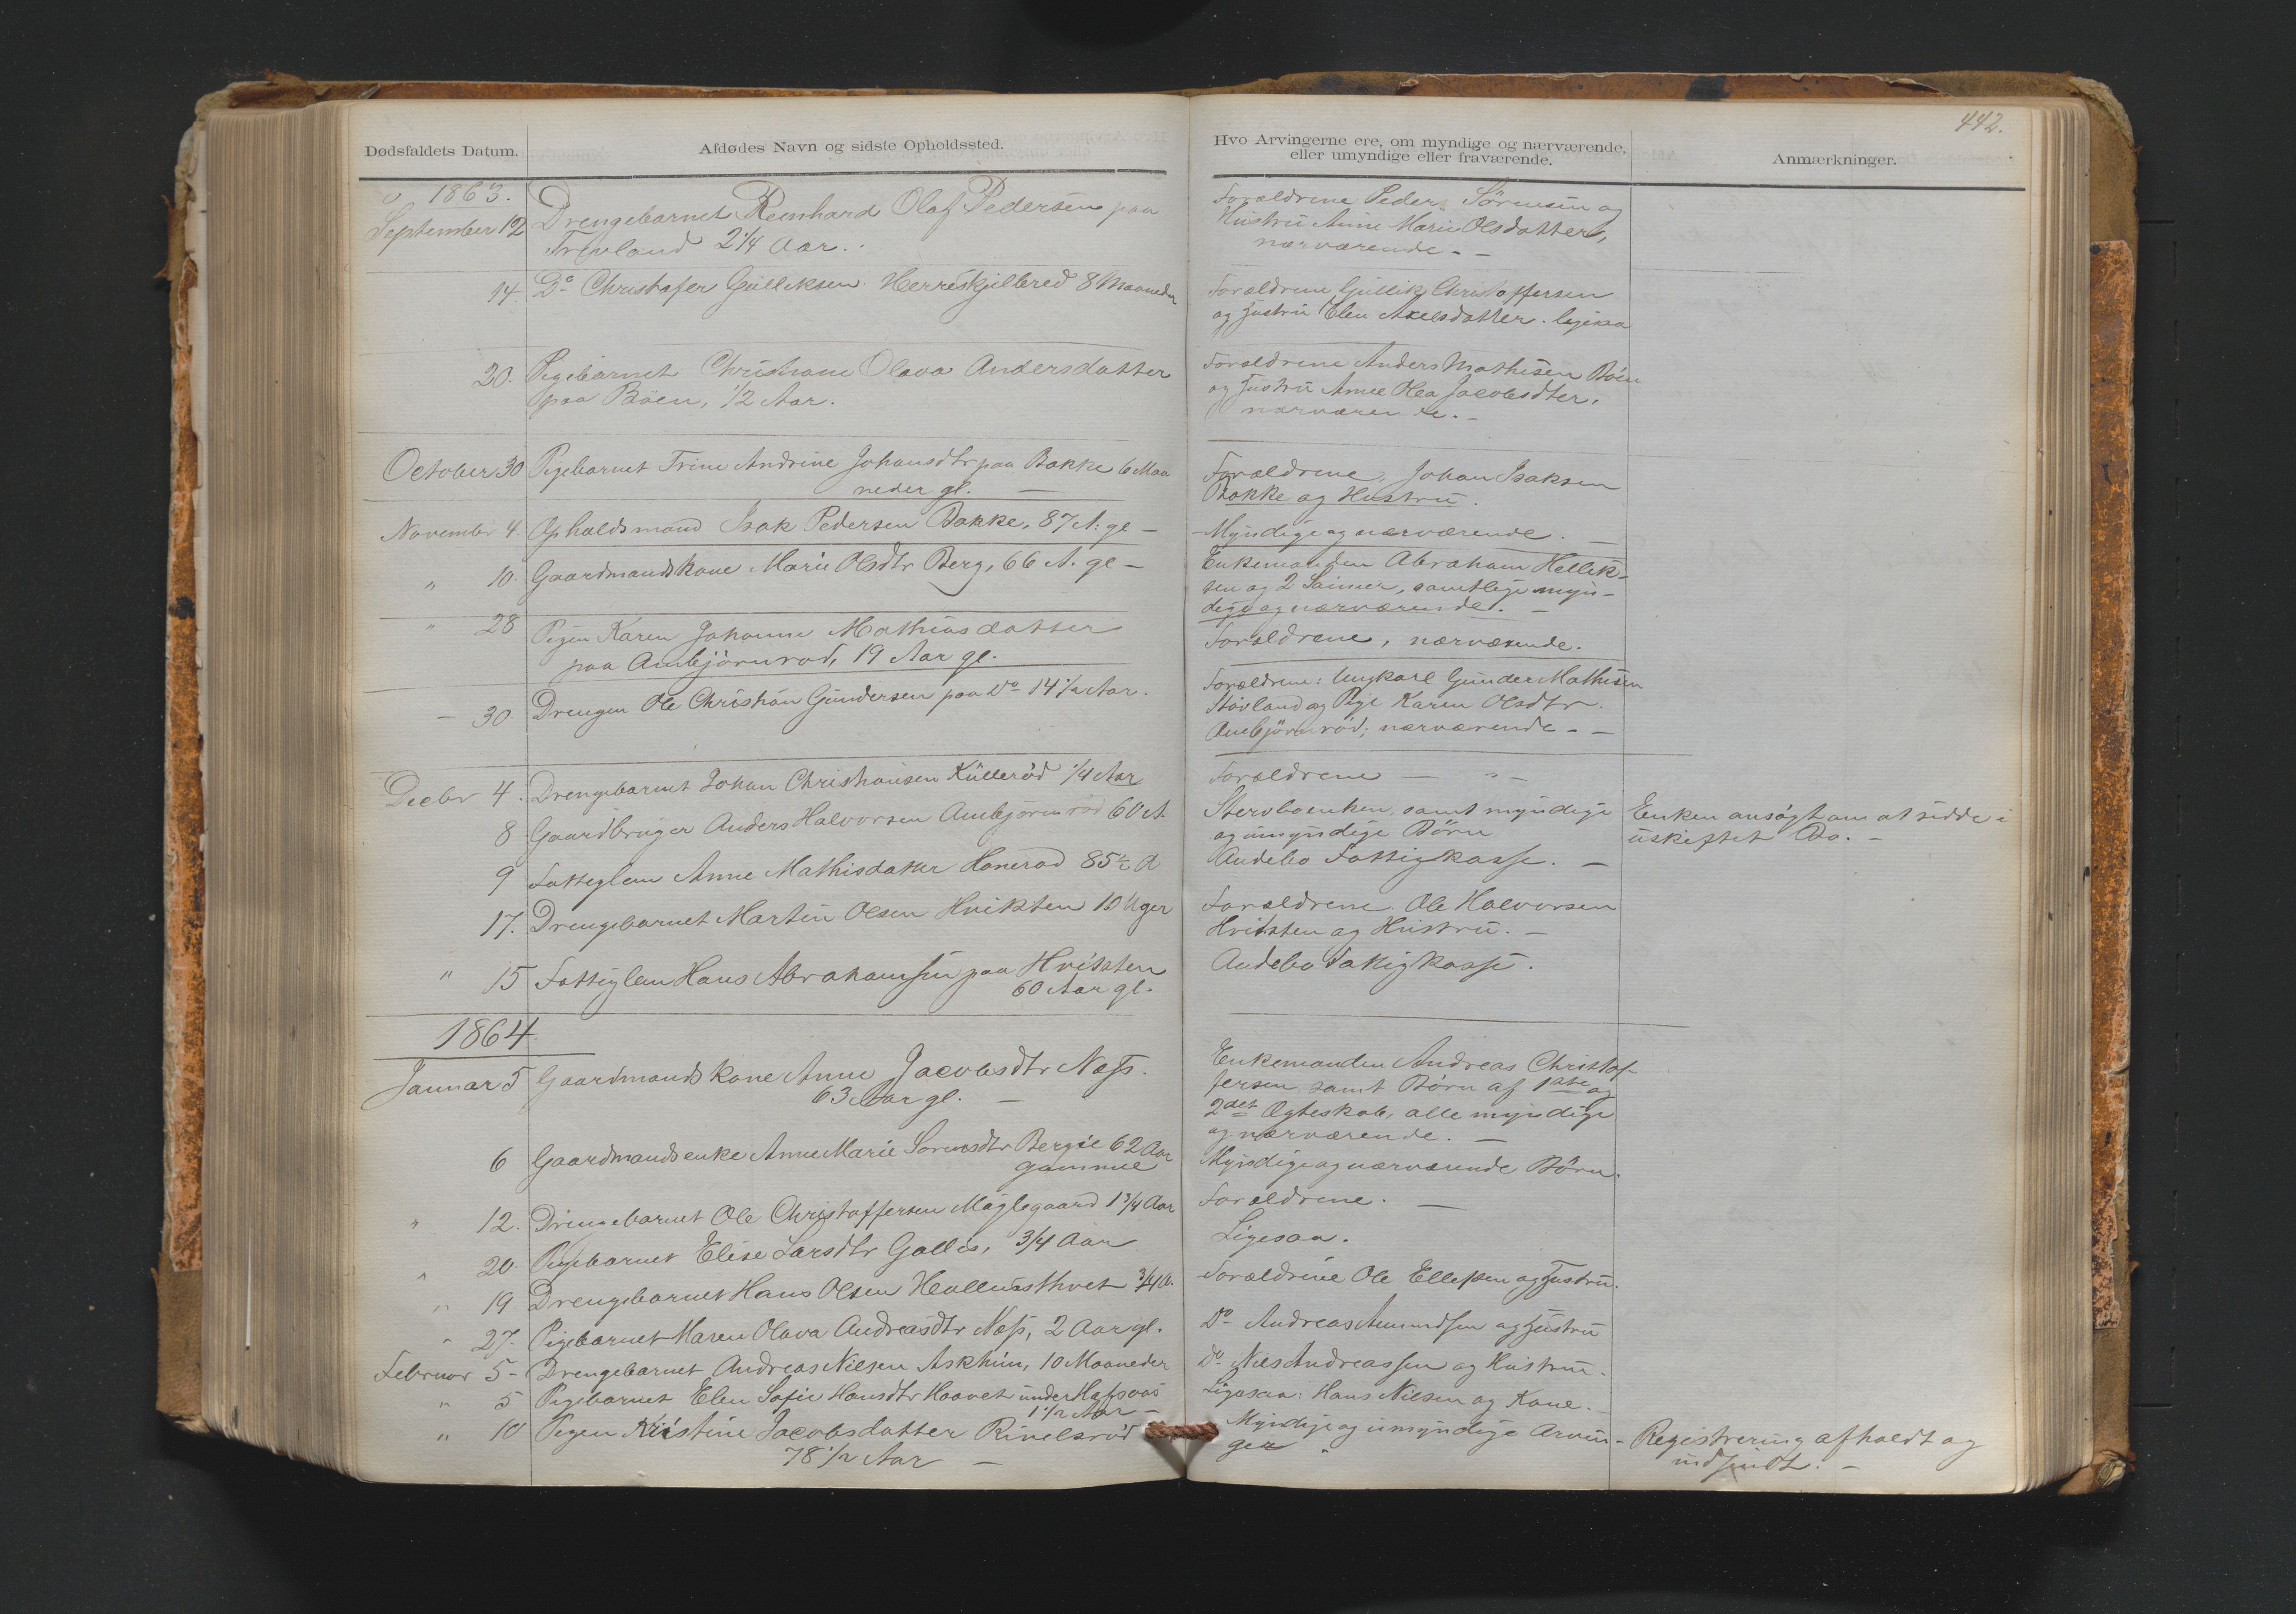 442.
Dødsfaldets Datum. Afdødes Navn og sidste Opholdssted. Hvo Arvingerne ere, om myndige og nærværende, eller umyndige eller fraværende. Anmærkninger.
1863.
September 12 Drengebarnet Reinhard Olaf Pedersen paa
Trevland 2 1/4 Aar.
Forældrene Peder Sørensen og
Hustru Anne Marie Olsdatter,
nærværende. -
14. Do Christofer Gulliksen Herreskjelbred 8 Maaneder
Forældrene Gullik Christoffersen
og Hustru Elen Axelsdatter. ligesaa
20. Pigebarnet Christiane Olava Andersdatter
paa Böen, 1/2 Aar.
Forældrene Anders Mathisen Böen
og Hustru Anne Olea Jacobsdter,
nærværende. -
October 30 Pigebarnet Trine Andrine Johansdtr paa Bakke 6 Maa
neder gl. -
Forældrene, Johan Isaksen
Bakke og Hustru.
November 4. Opholdsmand Isak Pedersen Bakke, 87 A. gl -
Myndige og nærværende. -
" 10. Gaardmandskone Marie Olsdtr Berg, 66 A. gl -
Enkemanden Abraham Hellik-
sen og 2 Sønner, samtlige myn-
dige og nærværende. -
" 28 Pigen Karen Johanne Mathiasdatter
paa Ambjörnröd, 19 Aar gl.
Forældrene, nærværende.
- 30 Drengen Ole Christian Gundersen paa Do 14 1/2 Aar.
Forældrene: Ungkarl Gunder Mathisen
Stövland og Pige Karen Olsdtr.
Ambjörnröd; nærværende - -
Decbr 4. Drengebarnet Johan Christiansen Kulleröd 1/4 Aar
Forældrene - " -
8 Gaardbruger Anders Halvorsen Ambjörnröd 60 A
Stervboenken samt myndige
og umyndige Børn
Enken ansøgt om at sidde i
uskiftet Bo. -
9 Fattiglem Anne Mathisdatter Honeröd 85 1/2 A
Andebo Fattigkasse. -
17. Drengebarnet Martin Olsen Hvitsten 10 Uger
Forældrene Ole Halvorsen
Hvitsten og Hustru. -
" 15 Fattiglem Hans Abrahamsen paa Hvitsten
60 Aar gl.
Andebo Fattigkasse.
1864
Januar 5 Gaardmandskone Anne Jacobsdtr Næss.
63 Aar gl. -
Enkemanden Andreas Christof-
fersen samt Børn af 1ste og
2det Ægteskab, alle myndige
og nærværende. -
6 Gaardmandsenke Anne Marie Sörensdtr Berg 62 Aar
gammel
Myndige og nærværende Børn.
" 12. Drengebarnet Ole Christoffersen Møglegaard 1 3/4 Aar
Forældrene. -
" 20. Pigebarnet Elise Larsdtr Gallis, 3/4 Aar
Ligesaa.
" 19 Drengebarnet Hans Olsen Hallenstvet 3/4 A.
Forældrene Ole Ellefsen og Hustru.
" 27. Pigebarnet Maren Olava Andreasdtr Næss, 2 Aar gl.
Do Andreas Amundsen og Hustru
Februar 5 - Drengebarnet Andreas Nilsen Askhim, 10 Maaneder
Do Nils Andreassen og Hustru.
" 5 Pigebarnet Elen Sofie Hansdtr Haavet under Hafsaas
1 1/2 Aar -
Ligesaa: Hans Nilsen og Kone. -
" 10 Pigen Kristine Jacobsdatter Rivelsröd
78 1/2 Aar -
Myndige og umyndige Arvin-
ger
Registrering afholdt og
indsendt. -